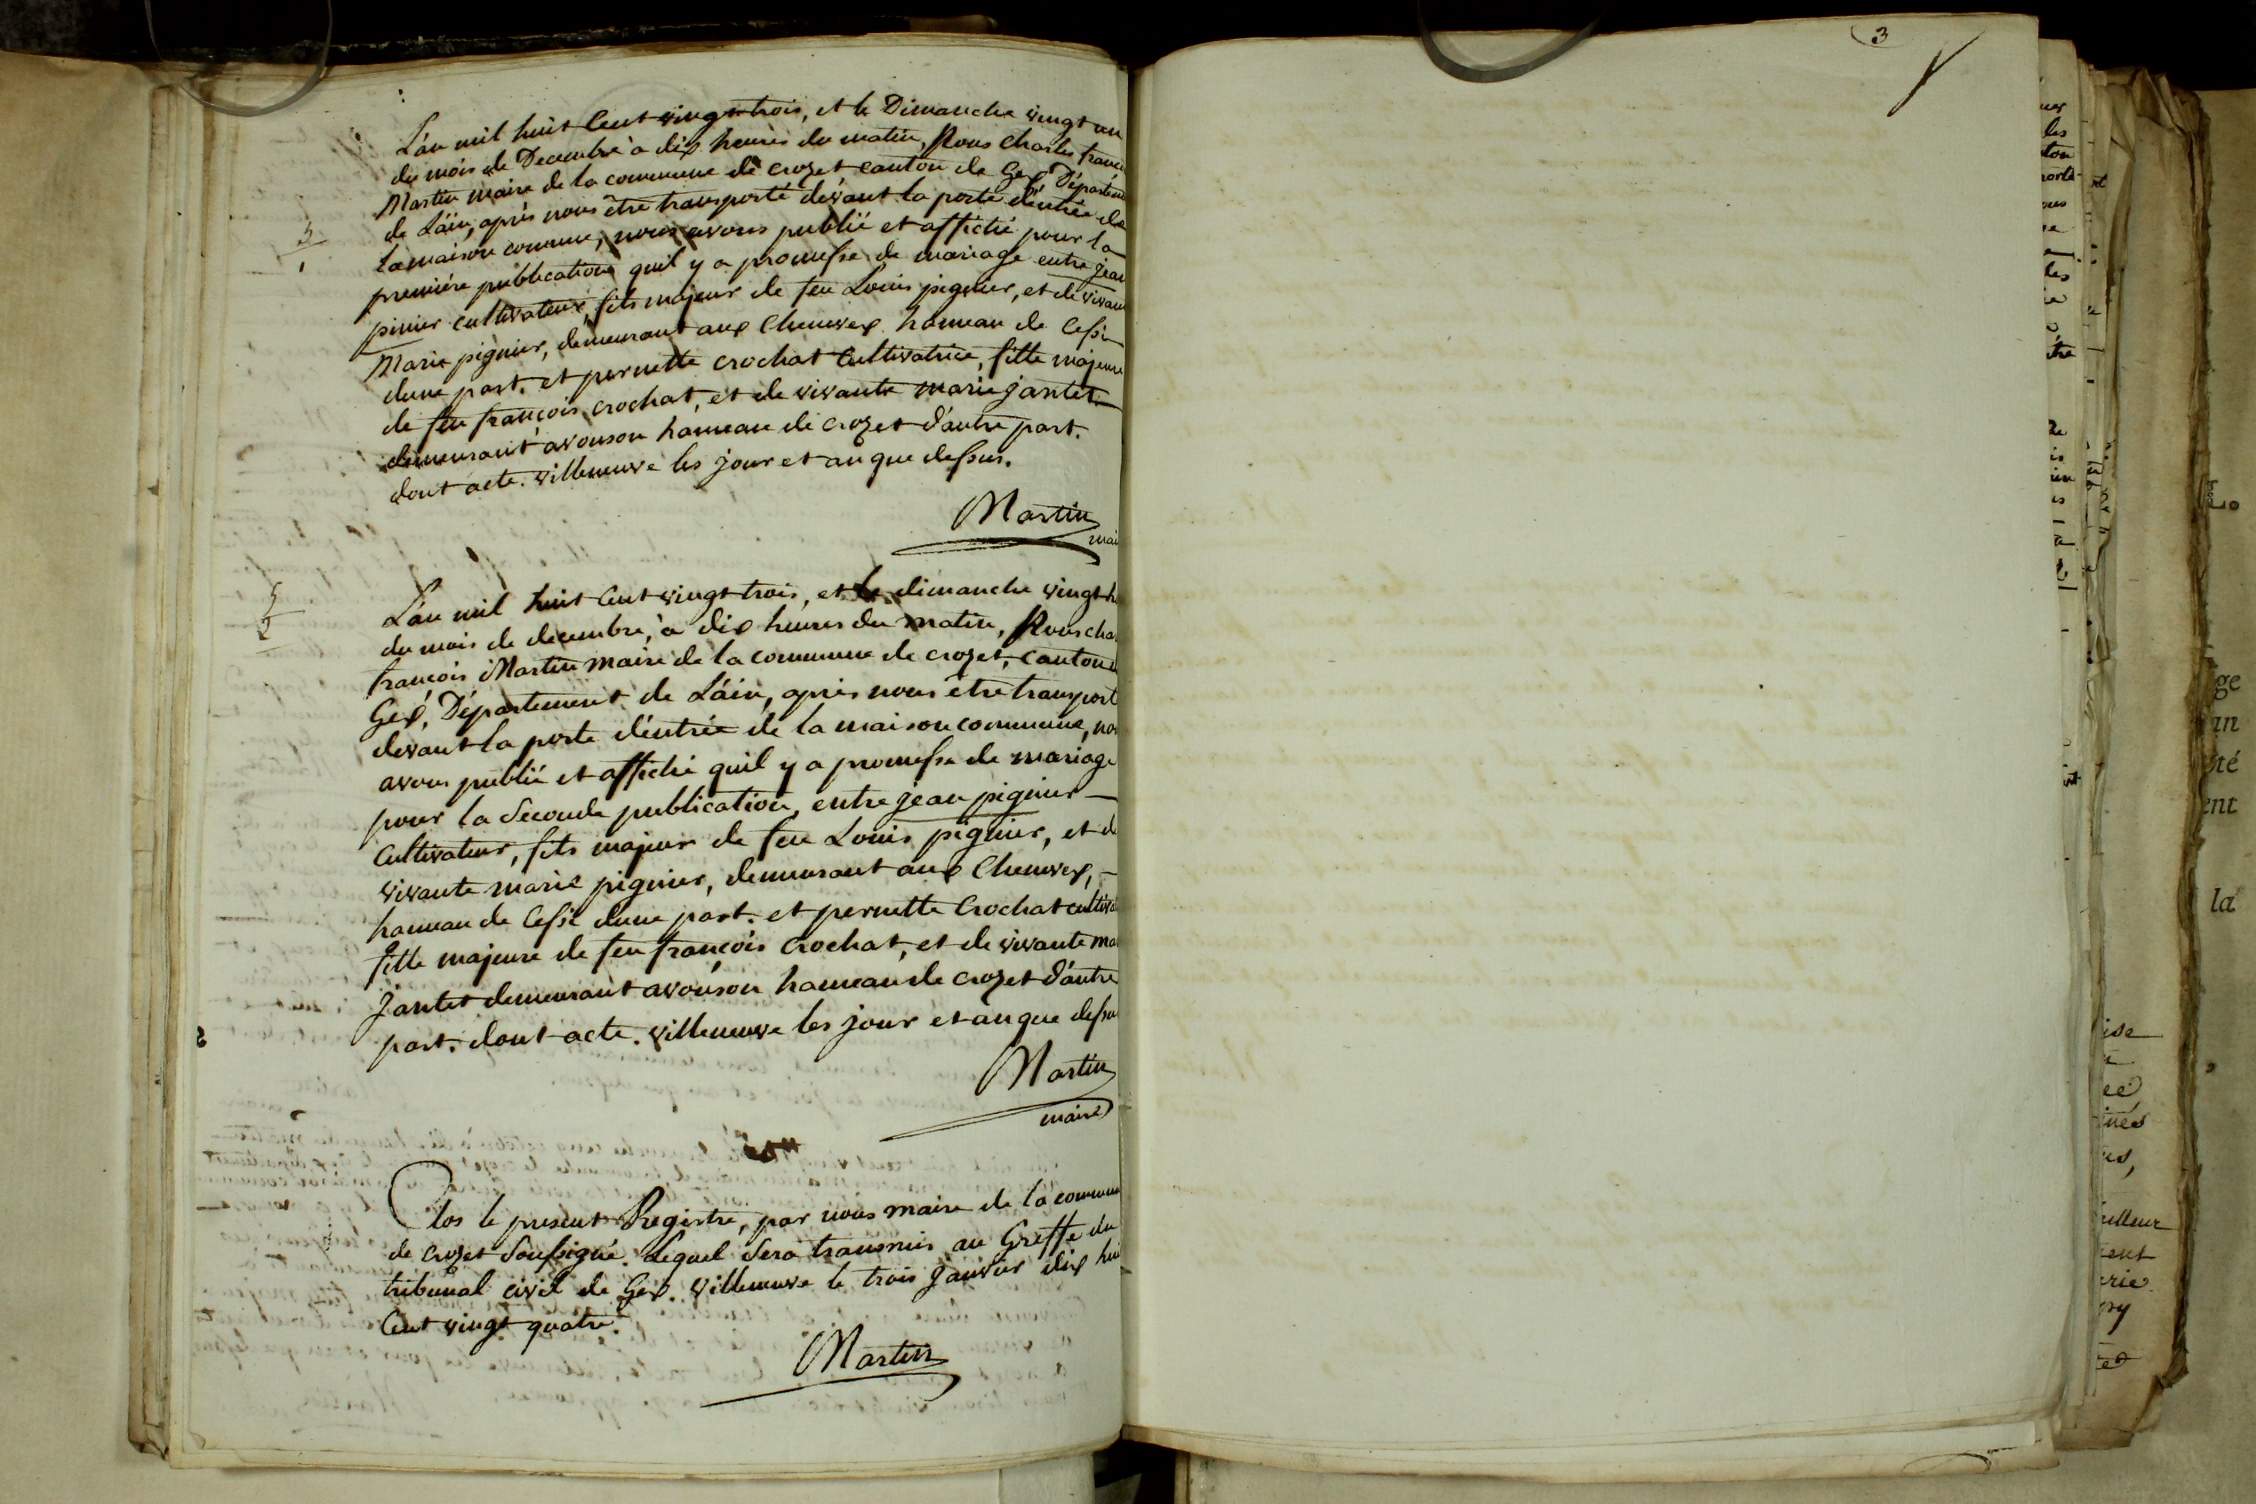 3
L'an mil huit Cent vingt trois, et le Dimanche vingt un
du mois de Decembre à dix heures du matin, Nous Charles franc
Martin maire de la commune de crozet canton de Gex Départem
de L'ain, après nous être transporté dévant la porte d'entrée de
la maison comune, nous avons publié et affiché pour la
premiére publication quil y a promesse de mariage entre jean
pinier cultivateur, fils majeur de feu Louis pignier, et de vivan
Marie pignier, demeurant aux Chenevex hameau de Cessi
dune part. et pernette crochat Cultivatrice, fille majeure
de feu françois crochat, et de vivante marie jantet
demeurant avouson hameau de crozet d'autre part.
dont acte. villeneuve les jour et an que dessus.
Martin
mai
L'an mil huit Cent vingt trois, et le dimanche vingt h
du mois de decembre, à dix heures du matin, Nous cha
françois Martin maire de la commune de crozet, canton d
Gex, Département de L'ain, après nous être transport
dévant la porte d'entrée de la maison commune, no
avons publié et affiché quil y a promesse de mariage
pour la Seconde publication, entre jean pignier
Cultivateur, fils majeur de feu Louis pignier, et d
vivante marie pignier, demeurant aux Chenevex,
hameau de Cessi dune part. et pernette Crochat cultiva
fille majeure de feu françois Crochat, et de vivante ma
Jantet demeurant avouson hameau de crozet d'autre
part. dont acte. villeneuve les jour et an que dessu
Martin
maire
Clos le present Registre, par nous maire de la commun
de crozet Soussigné. Lequel Sera transmis au Greffe du
tribunal civil de Gex. villeneuve le trois janvier dix hui
Cent vingt quatre.
Martin